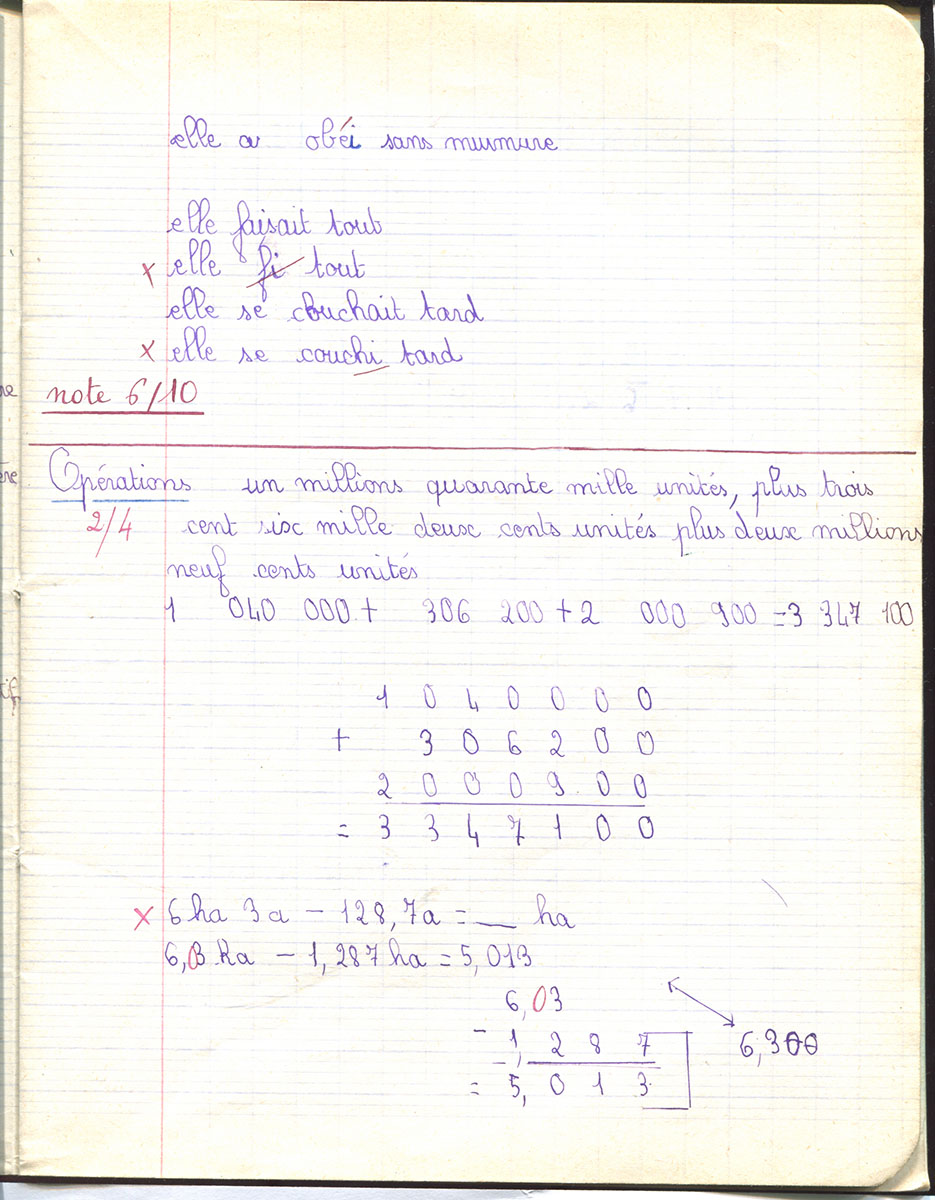 elle a obéi sans murmure
elle faisait tout
x elle fi tout
elle se couchait tard
x elle se couchi tard
note 6/10
Opérations un millions quarante mille unités, plus trois
2/4 cent six mille deux cents unités plus deux millions
neuf cents unités
1 040 000 + 306 200 + 2 000 900 = 3 347 100
1 0 4 0 0 0 0
+ 3 0 6 2 0 0
2 0 0 0 9 0 0
= 3 3 4 7 1 0 0
x 6 ha 3 a - 128,7a = __ ha
6,03 ha - 1,287 ha = 5,013
6,03
- 1, 2 8 7
6,300
= 5, 0 1 3